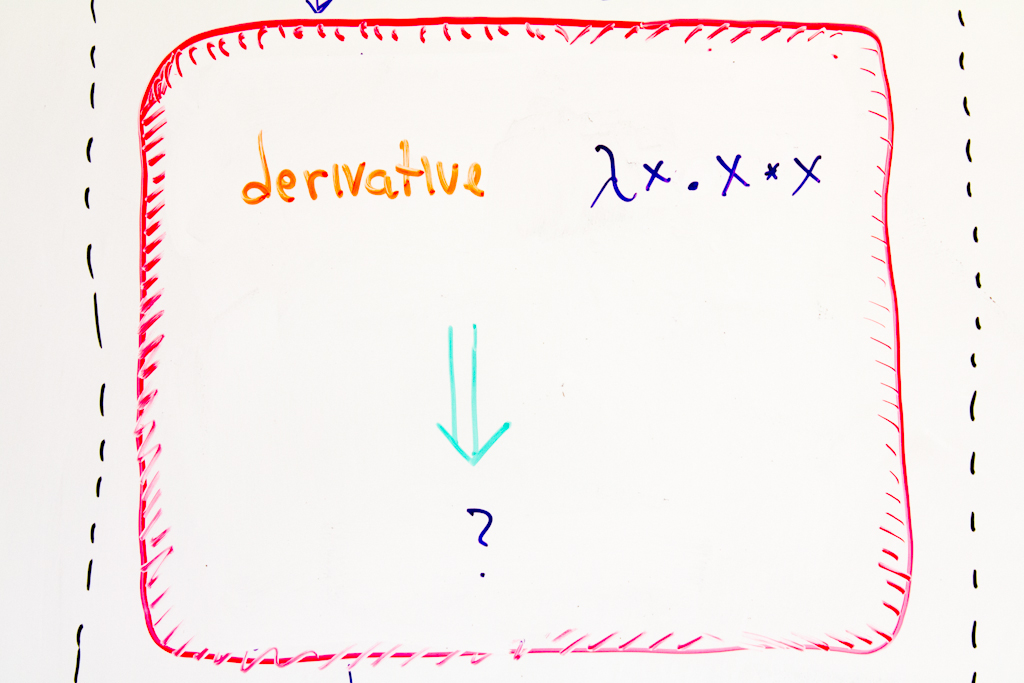 derivative λx.x*x
?